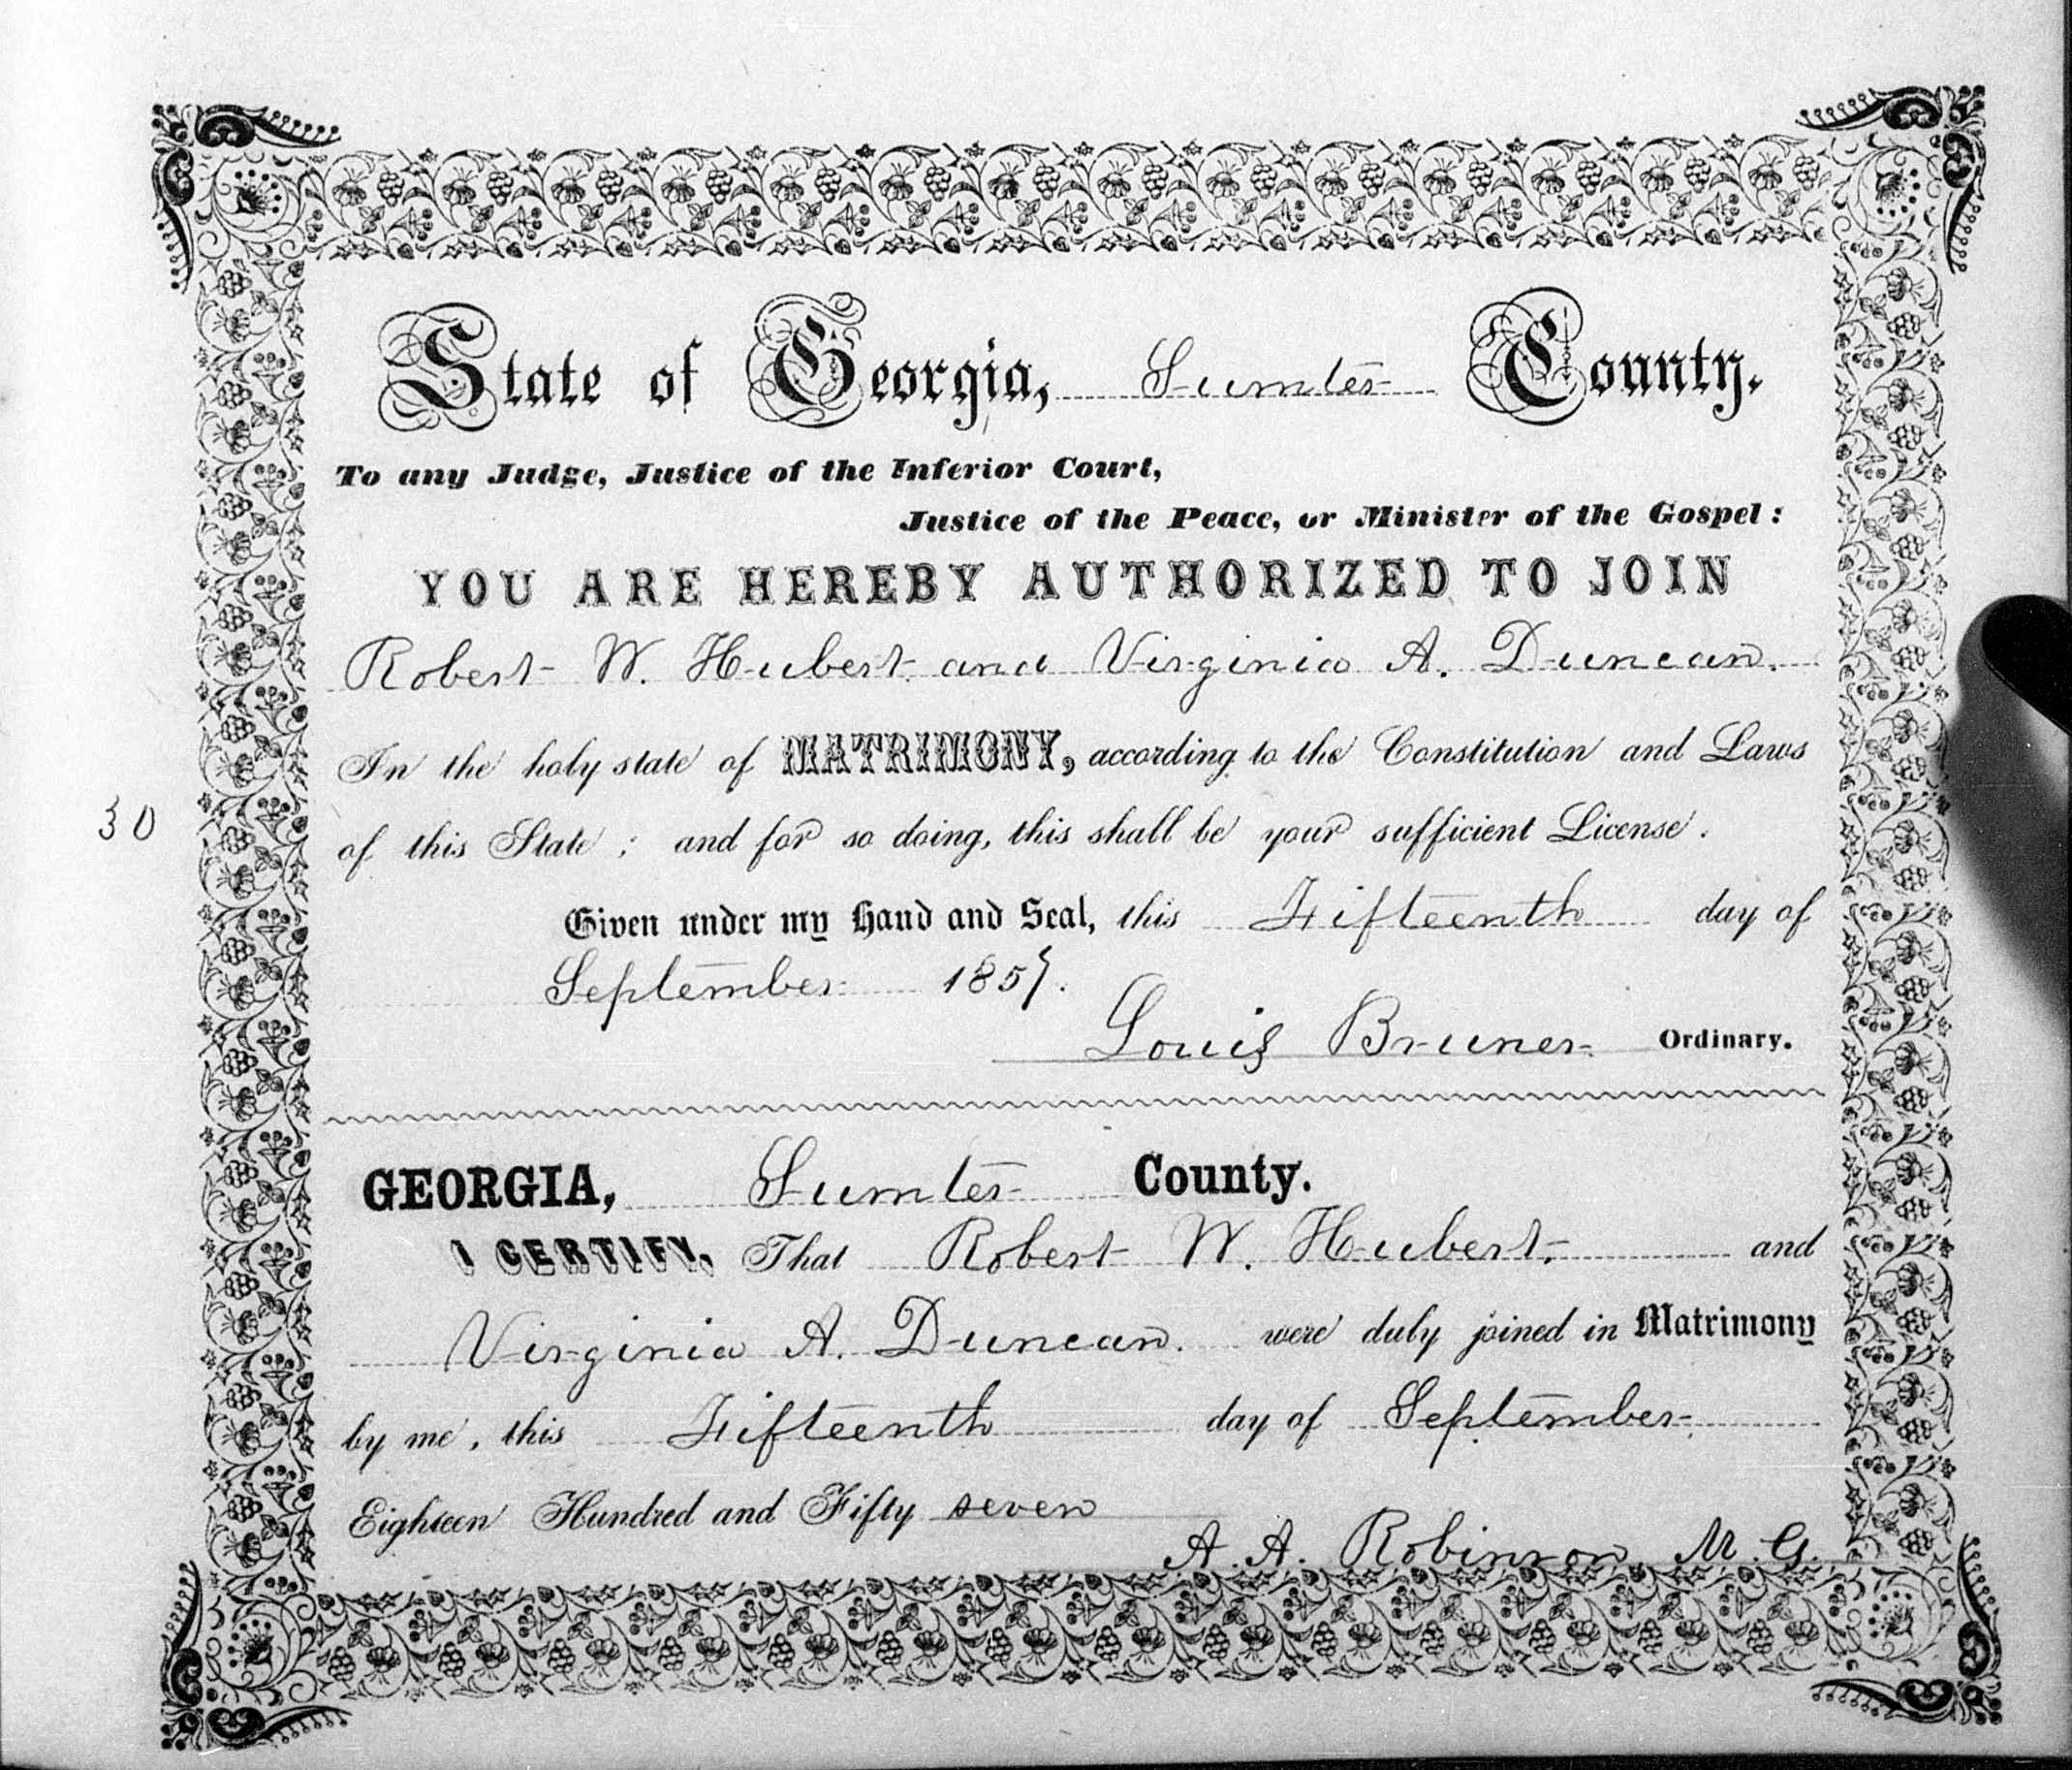 State of Georgia, Sumter County.
To any Judge, Justice of the Inferior Court,
Justice of the Peace, or Minister of the Gospel:
YOU ARE HEREBY AUTHORIZED TO JOIN
Robert W. Hubert and Virginia A. Duncan.
In the holy state of MATRIMONY, according to the Constitution and Laws
30
of this State; and for so doing, this shall be your sufficient License.
Given under my Hand and Seal, this Fifteenth day of
September 1857.
Louis Bruner Ordinary.
GEORGIA, Sumter County.
I CERTIFY, That Robert W. Hubert. and
Virginia A. Duncan. were duly joined in Matrimony
by me, this Fifteenth day of September
Eighteen Hundred and Fifty seven
A. A. Robinson, M. G.